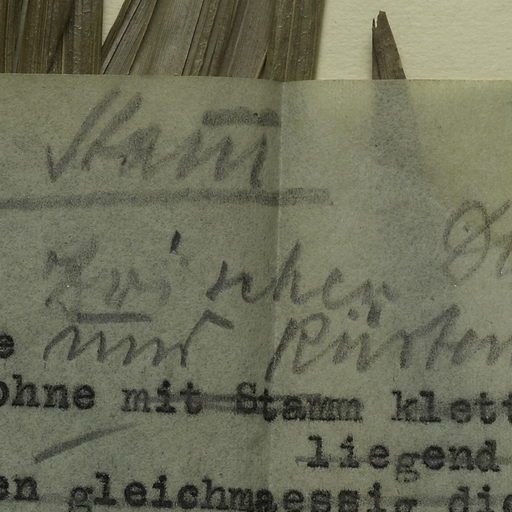 Stam̅
Zwischen
und Küsten
ohne mit Stamm klett
liegend
en gleichmaessig di